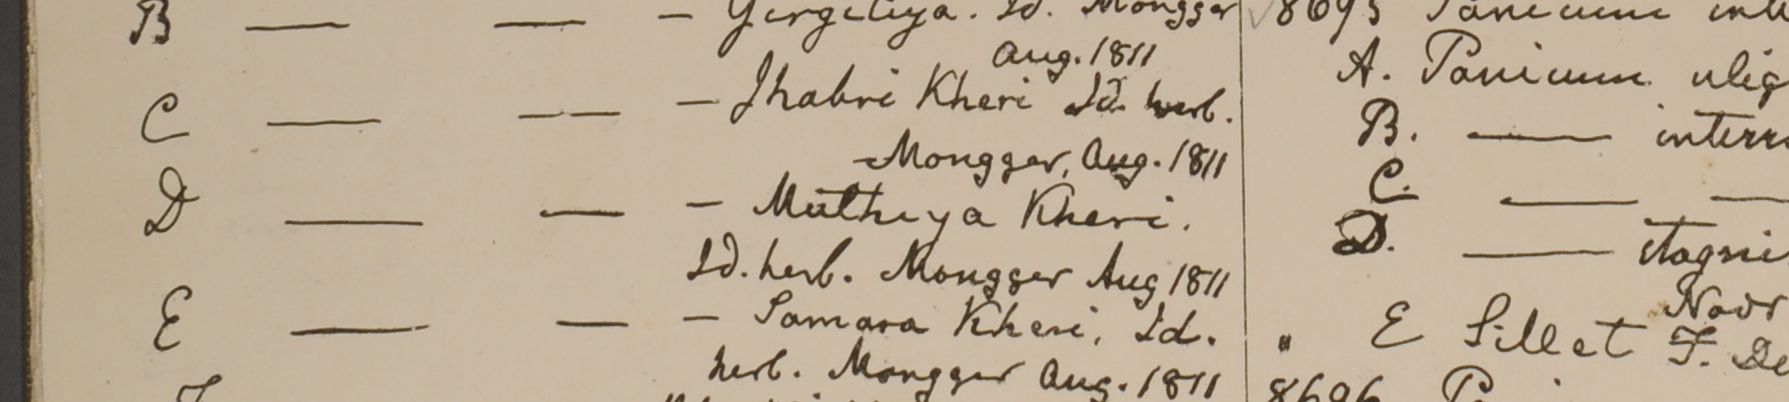 B — — — Gergeliya. Id. Mongger
Aug. 1811
C — — — Jhabri Kheri Id. herb.
Mongger, Aug. 1811
D — — — Muthiya Kheri.
Id. herb. Mongger Aug 1811
E — — — Samara Kheri, Id.
herb. Mongger Aug. 1811
8695 Panicum
A. Panicum ulig
B. — interr
C. — —
D. — stagni
Nov
" E Sillet F. De
8696